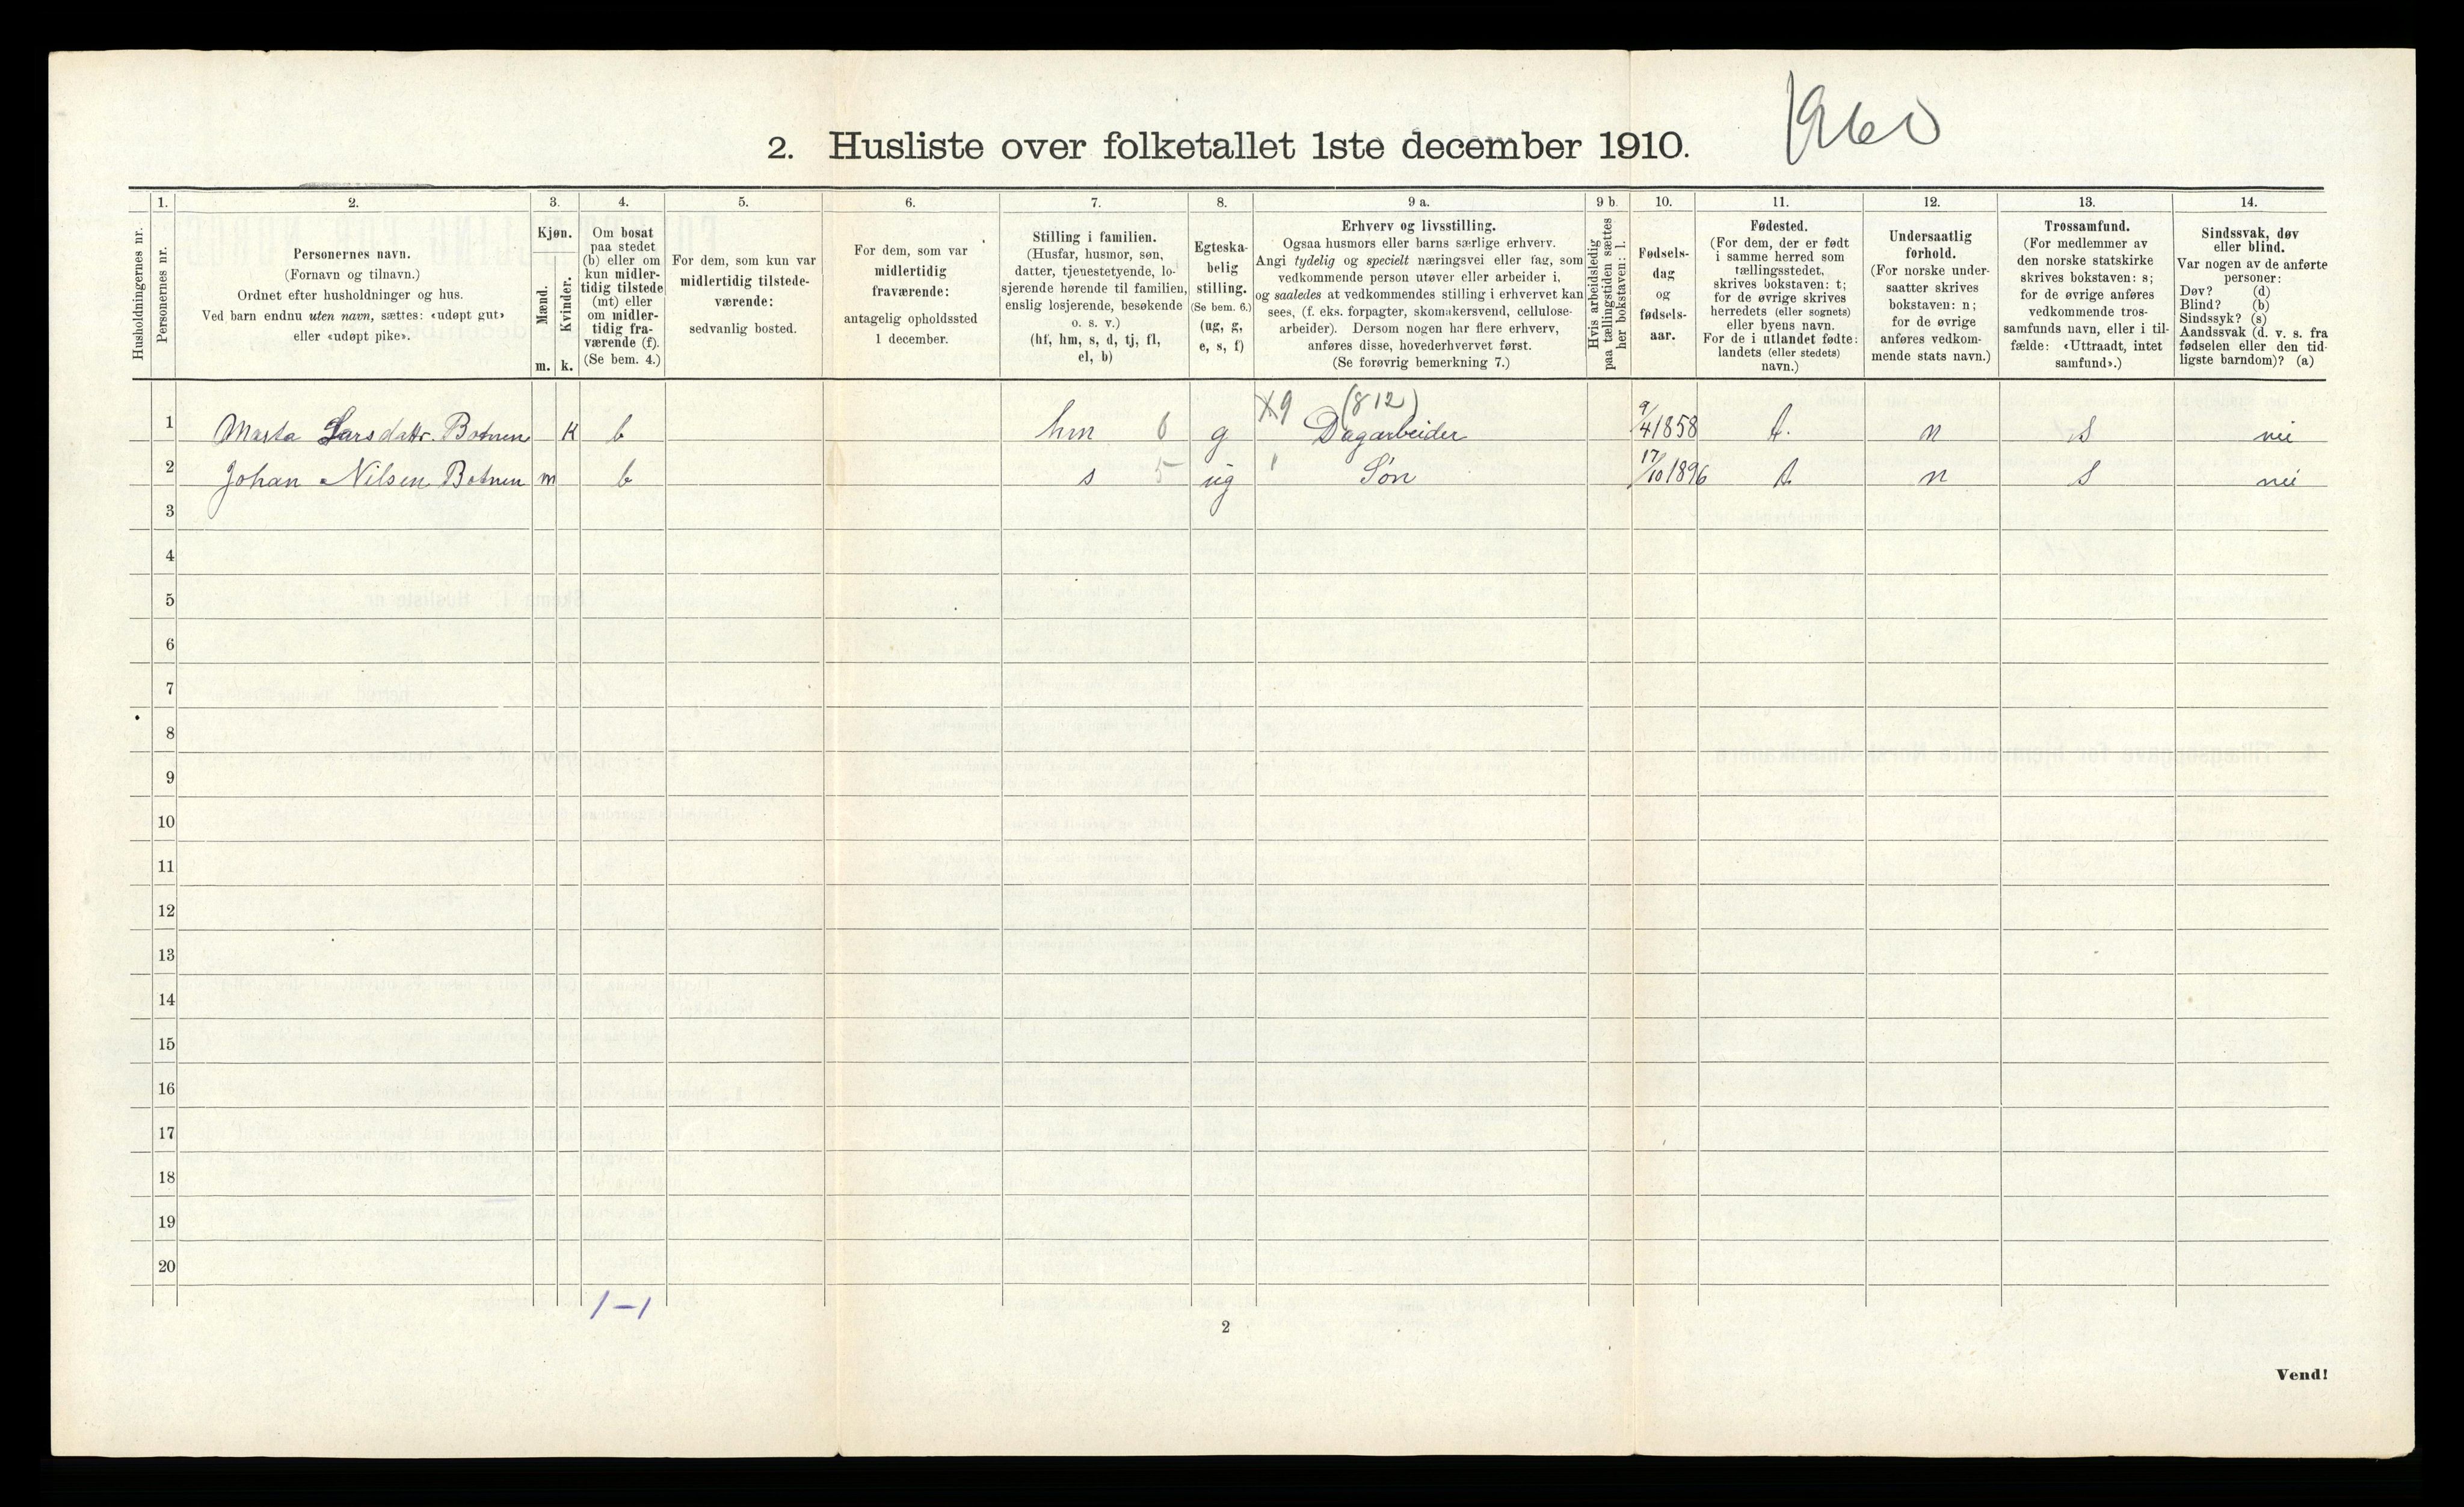 2. Husliste over folketallet 1ste december 1910.
1. 2. 3. 4. 5. 6. 7. 8. 9 a. 9 b. 10. 11. 12. 13. 14.
Husholdningernes nr.
Personernes nr.
Personernes navn.
(Fornavn og tilnavn.)
Ordnet efter husholdninger og hus.
Ved barn endnu uten navn, sættes: «udøpt gut»
eller «udøpt pike».
Kjøn.
Mænd.
Kvinder.
m. k.
Om bosat
paa stedet
(b) eller om
kun midler-
tidig tilstede
(mt) eller
om midler-
tidig fra-
værende (f).
(Se bem. 4.)
For dem, som kun var
midlertidig tilstede-
værende:
sedvanlig bosted.
For dem, som var
midlertidig
fraværende:
antagelig opholdssted
1 december.
Stilling i familien.
(Husfar, husmor, søn,
datter, tjenestetyende, lo-
sjerende hørende til familien,
enslig losjerende, besøkende
o. s. v.)
(hf, hm, s, d, tj, fl,
el, b)
Egteska-
belig
stilling.
(Se bem. 6.)
(ug, g,
e, s, f)
Erhverv og livsstilling.
Ogsaa husmors eller barns særlige erhverv.
Angi tydelig og specielt næringsvei eller fag, som
vedkommende person utøver eller arbeider i,
og saaledes at vedkommendes stilling i erhvervet kan
sees, (f. eks. forpagter, skomakersvend, cellulose-
arbeider). Dersom nogen har flere erhverv,
anføres disse, hovederhvervet først.
(Se forøvrig bemerkning 7.)
Hvis arbeidsledig
paa tællingstiden sættes
her bokstaven: l.
Fødsels-
dag
og
fødsels-
aar.
Fødested.
(For dem, der er født
i samme herred som
tællingsstedet,
skrives bokstaven: t;
for de øvrige skrives
herredets (eller sognets)
eller byens navn.
For de i utlandet fødte:
landets (eller stedets)
navn.)
Undersaatlig
forhold.
(For norske under-
saatter skrives
bokstaven: n;
for de øvrige
anføres vedkom-
mende stats navn.)
Trossamfund.
(For medlemmer av
den norske statskirke
skrives bokstaven: s;
for de øvrige anføres
vedkommende tros-
samfunds navn, eller i til-
fælde: «Uttraadt, intet
samfund».)
Sindssvak, døv
eller blind.
Var nogen av de anførte
personer:
Døv? (d)
Blind? (b)
Sindssyk? (s)
Aandssvak (d. v. s. fra
fødselen eller den tid-
ligste barndom)? (a)
X9 (812)
1 Marta Larsdattr. Botnen K b hm 6 g Dagarbeider 9/4 1858 t. n s nei
2 Johan Nilsen Botnen m b s 5 ug Søn 17/10 1896 t. n s nei
3
4
5
6
7
8
9
10
11
12
13
14
15
16
17
18
19
20
1-1
2
Vend!